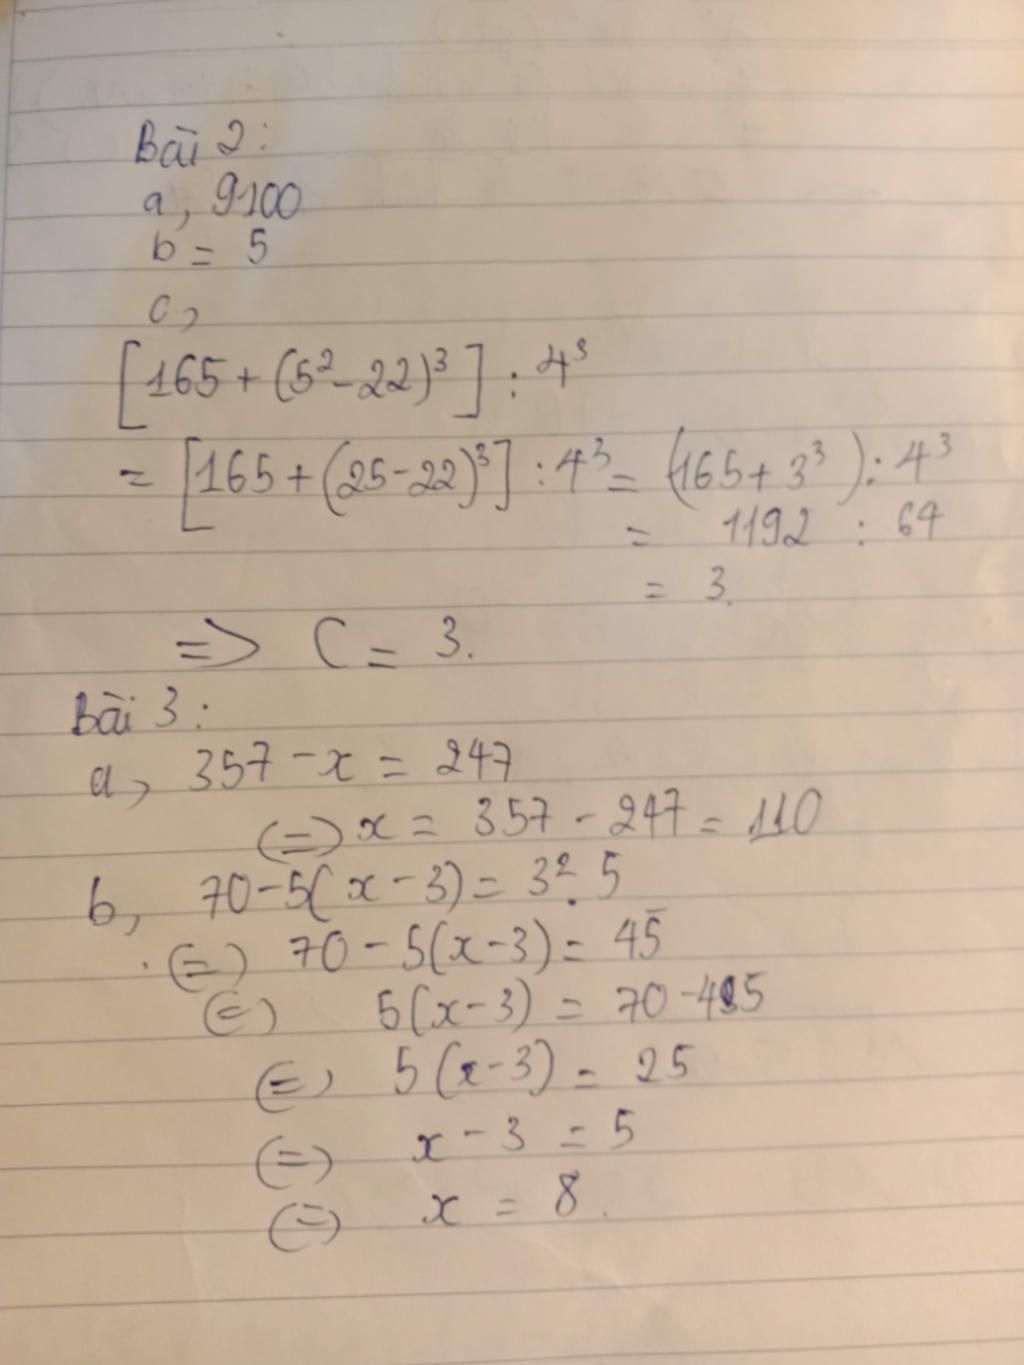 Bài 2:
a, 9100
b = 5
c,
[165 + (5² - 22)³] : 4³
= [165 + (25 - 22)³] : 4³ = (165 + 3³) : 4³
= 1192 : 64
= 3.
=> C = 3.
Bài 3:
a, 357 - x = 247
(=) x = 357 - 247 = 110
b, 70 - 5(x - 3) = 3² . 5
(=) 70 - 5(x - 3) = 45
(=) 5(x - 3) = 70 - 45
(=) 5(x - 3) = 25
(=) x - 3 = 5
(=) x = 8.